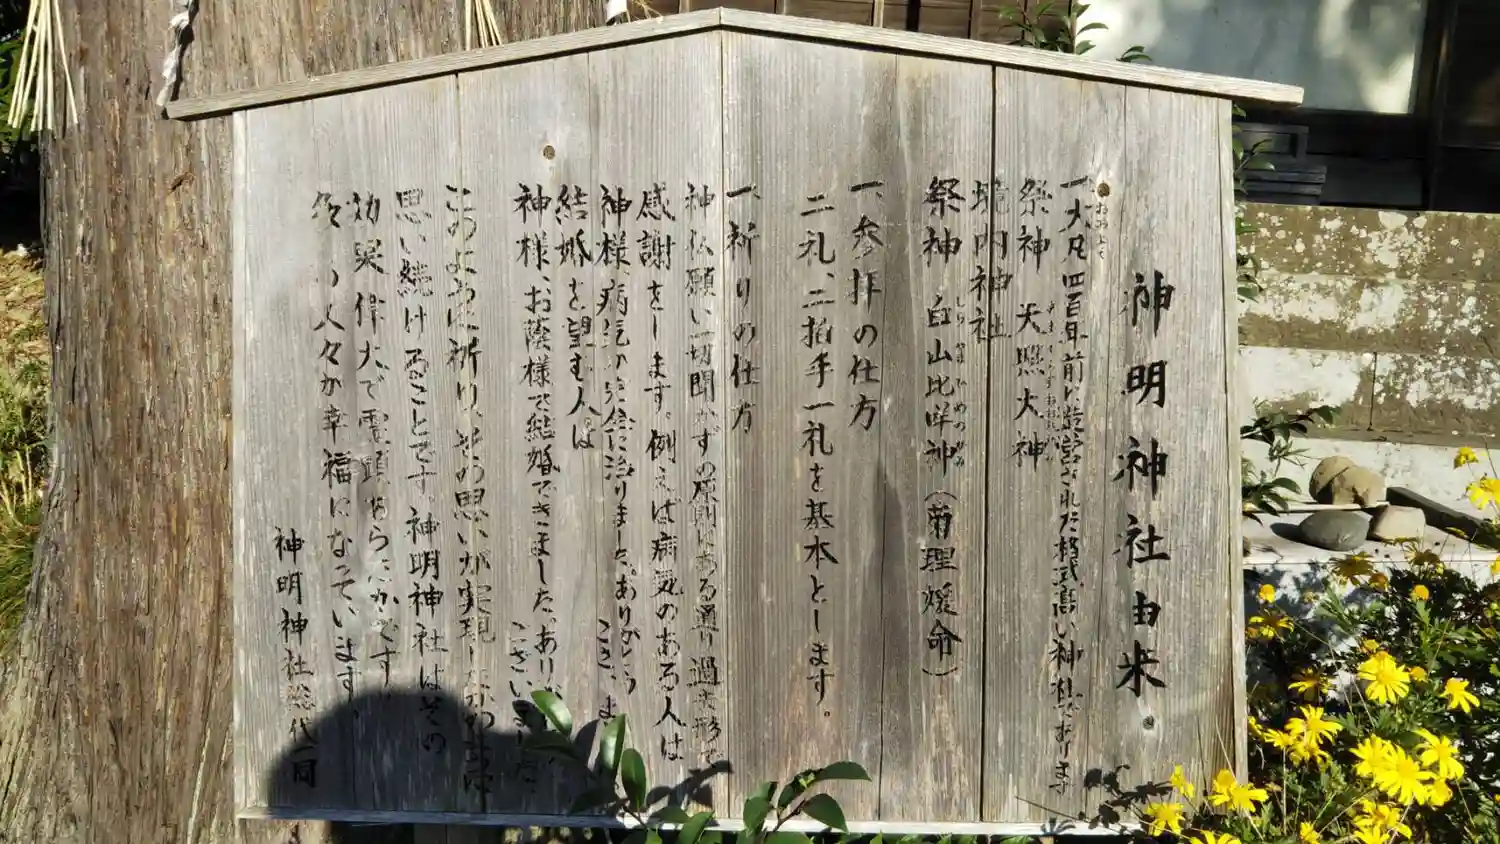 神明神社由来。
一、大凡四百年前に造営された格式高い神社であります
おおよそ
祭神 天照大神
境内神社
祭神 白山比咩神（菊理媛命）
しらやまひめの
一、参拝の仕方
二礼、二拍手一礼を基本とします。
一、祈りの仕方
神仏願い一切聞かずの原則はある通り過去形で
感謝をします。例えば病気のある人は
神様、病気が完全に治りました。ありがとう
ございます
結婚を望む人は
神様、お蔭様で結婚できました。ありがとう
ございました
このように祈り、その思いが実現した
思い続けることです。神明神社はその
効果偉大で霊顕あらたかです
の人々が幸福になっています。
神明神社総代一同